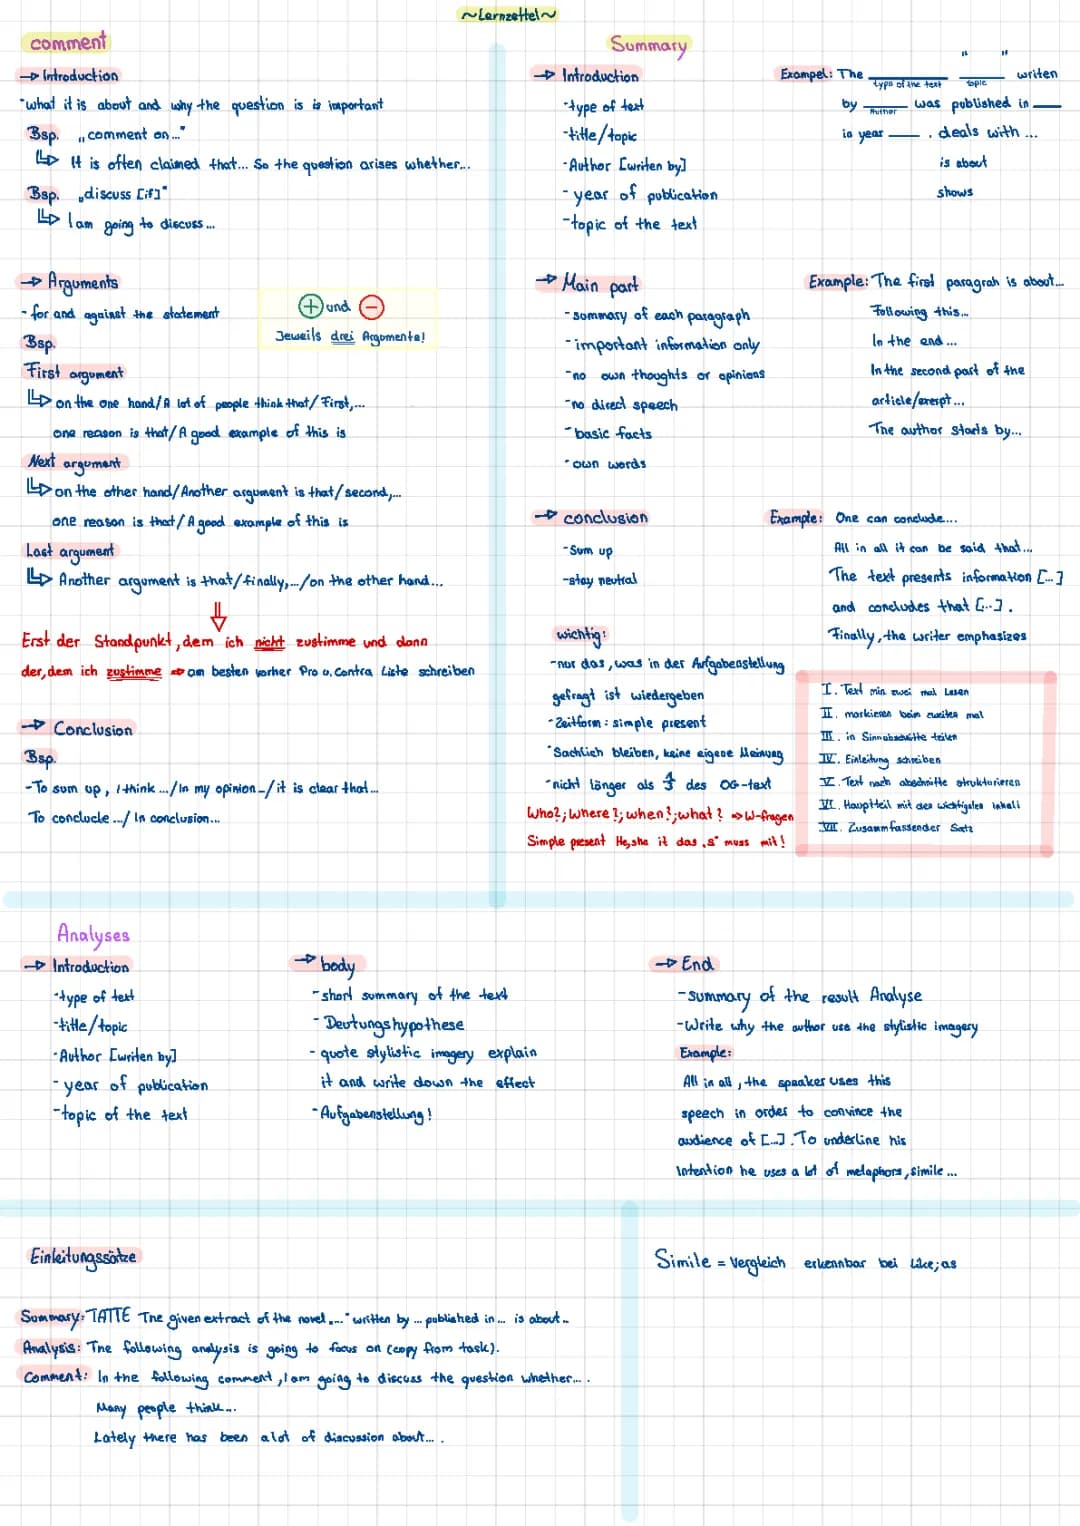 ~Lernzettel~
comment
→ Introduction
"what it is about and why the question is is important
Bsp. „comment on..."
↳ It is often claimed that... So the question arises whether...
Bsp. „discuss [if]"
↳ I am going to discuss...
→ Arguments
- for and against the statement
+ und -
Jeweils drei Argumente!
Bsp.
First argument
↳ on the one hand/A lot of people think that/First,...
one reason is that/A good example of this is
Next argument
↳ on the other hand/Another argument is that/second,...
one reason is that/A good example of this is
Last argument
↳ Another argument is that/finally,.../on the other hand...
⇓
Erst der Standpunkt, dem ich nicht zustimme und dann
der, dem ich zustimme ⇒ am besten vorher Pro u. Contra Liste schreiben
→ Conclusion
Bsp.
-To sum up, I think .../In my opinion-/it is clear that...
To conclude.../ In conclusion...
Summary
→ Introduction
-type of text
-title/topic
-Author [writen by]
- year of publication
-topic of the text
Exampel: The ______ "______" writen
type of the text topic
by ____ was published in ____
Author
in year ____. deals with ...
is about
shows
→ Main part
- summary of each paragraph
- important information only
-no own thoughts or opinions
-no direct speech
- basic facts
- own words
Example: The first paragrah is about...
Following this...
In the end ...
In the second part of the
article/exerpt...
The author starts by...
→ conclusion
-Sum up
-stay neutral
Example: One can conclude...
All in all it can be said that...
The text presents information [...]
and concludes that [...].
Finally, the writer emphasizes
wichtig:
-nur das, was in der Aufgabenstellung
gefragt ist wiedergeben
-Zeitform: simple present
-Sachlich bleiben, keine eigene Meinung
-nicht länger als des OG-text
Who?; Where?; when?; what? ⇒ W-fragen
Simple present He, she it das „s" muss mit!
I. Text min zwei mal Lesen
II. markieren beim zweiten mal
III. in Sinnabschnitte teilen
IV. Einleitung schreiben
V. Text nach abschnitte strukturieren
VI. Hauptteil mit des wichtigsten inhalt
VII. Zusammfassender Satz
Analyses
→ Introduction
-type of text
-title/topic
-Author [writen by]
- year of publication
-topic of the text
→ body
- short summary of the text
- Deutungshypothese
- quote stylistic imagery explain
it and write down the effect
- Aufgabenstellung!
→ End
-summary of the result Analyse
-Write why the author use the stylistic imagery
Example:
All in all, the speaker uses this
speech in order to convince the
audience of [...]. To underline his
Intention he uses a lot of metaphors, simile ...
Einleitungssätze
Summary: TATTE The given extract of the novel „..." written by ... published in ... is about..
Analysis: The following analysis is going to focus on (copy from task).
Comment: In the following comment, I am going to discuss the question whether... .
Many people think...
Lately there has been a lot of discussion about... .
Simile = Vergleich erkennbar bei like; as